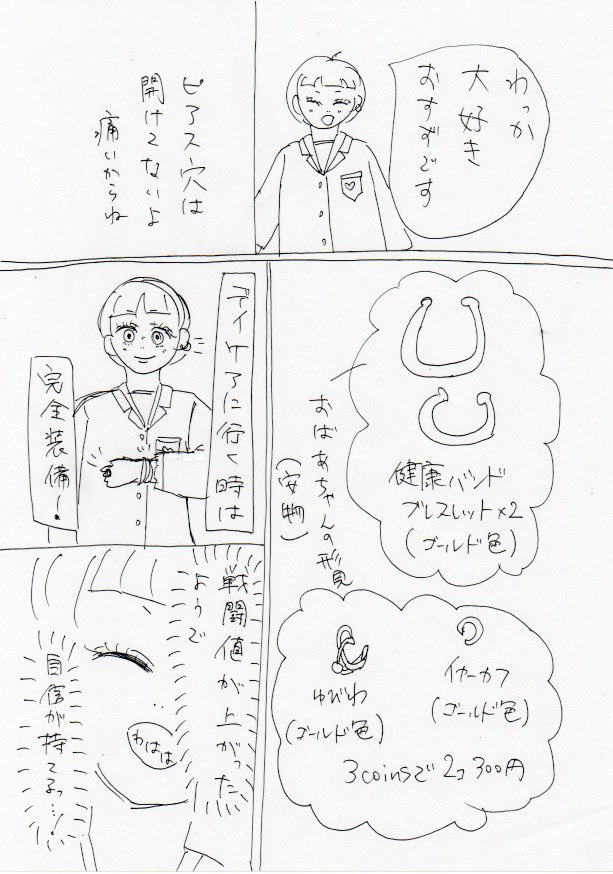 わっか
大好き
おすずです
ピアス穴は
開けてないよ
痛いからね
健康バンド
ブレスレット×2
(ゴールド色)
おばあちゃんの形見
(安物)
イヤーカフ
(ゴールド色)
ゆびわ
(ゴールド色)
3coinsで2コ300円
デイケアに行く時は
完全装備!
戦闘値が上がった
ようで
わはは
自信が持てるっ…!